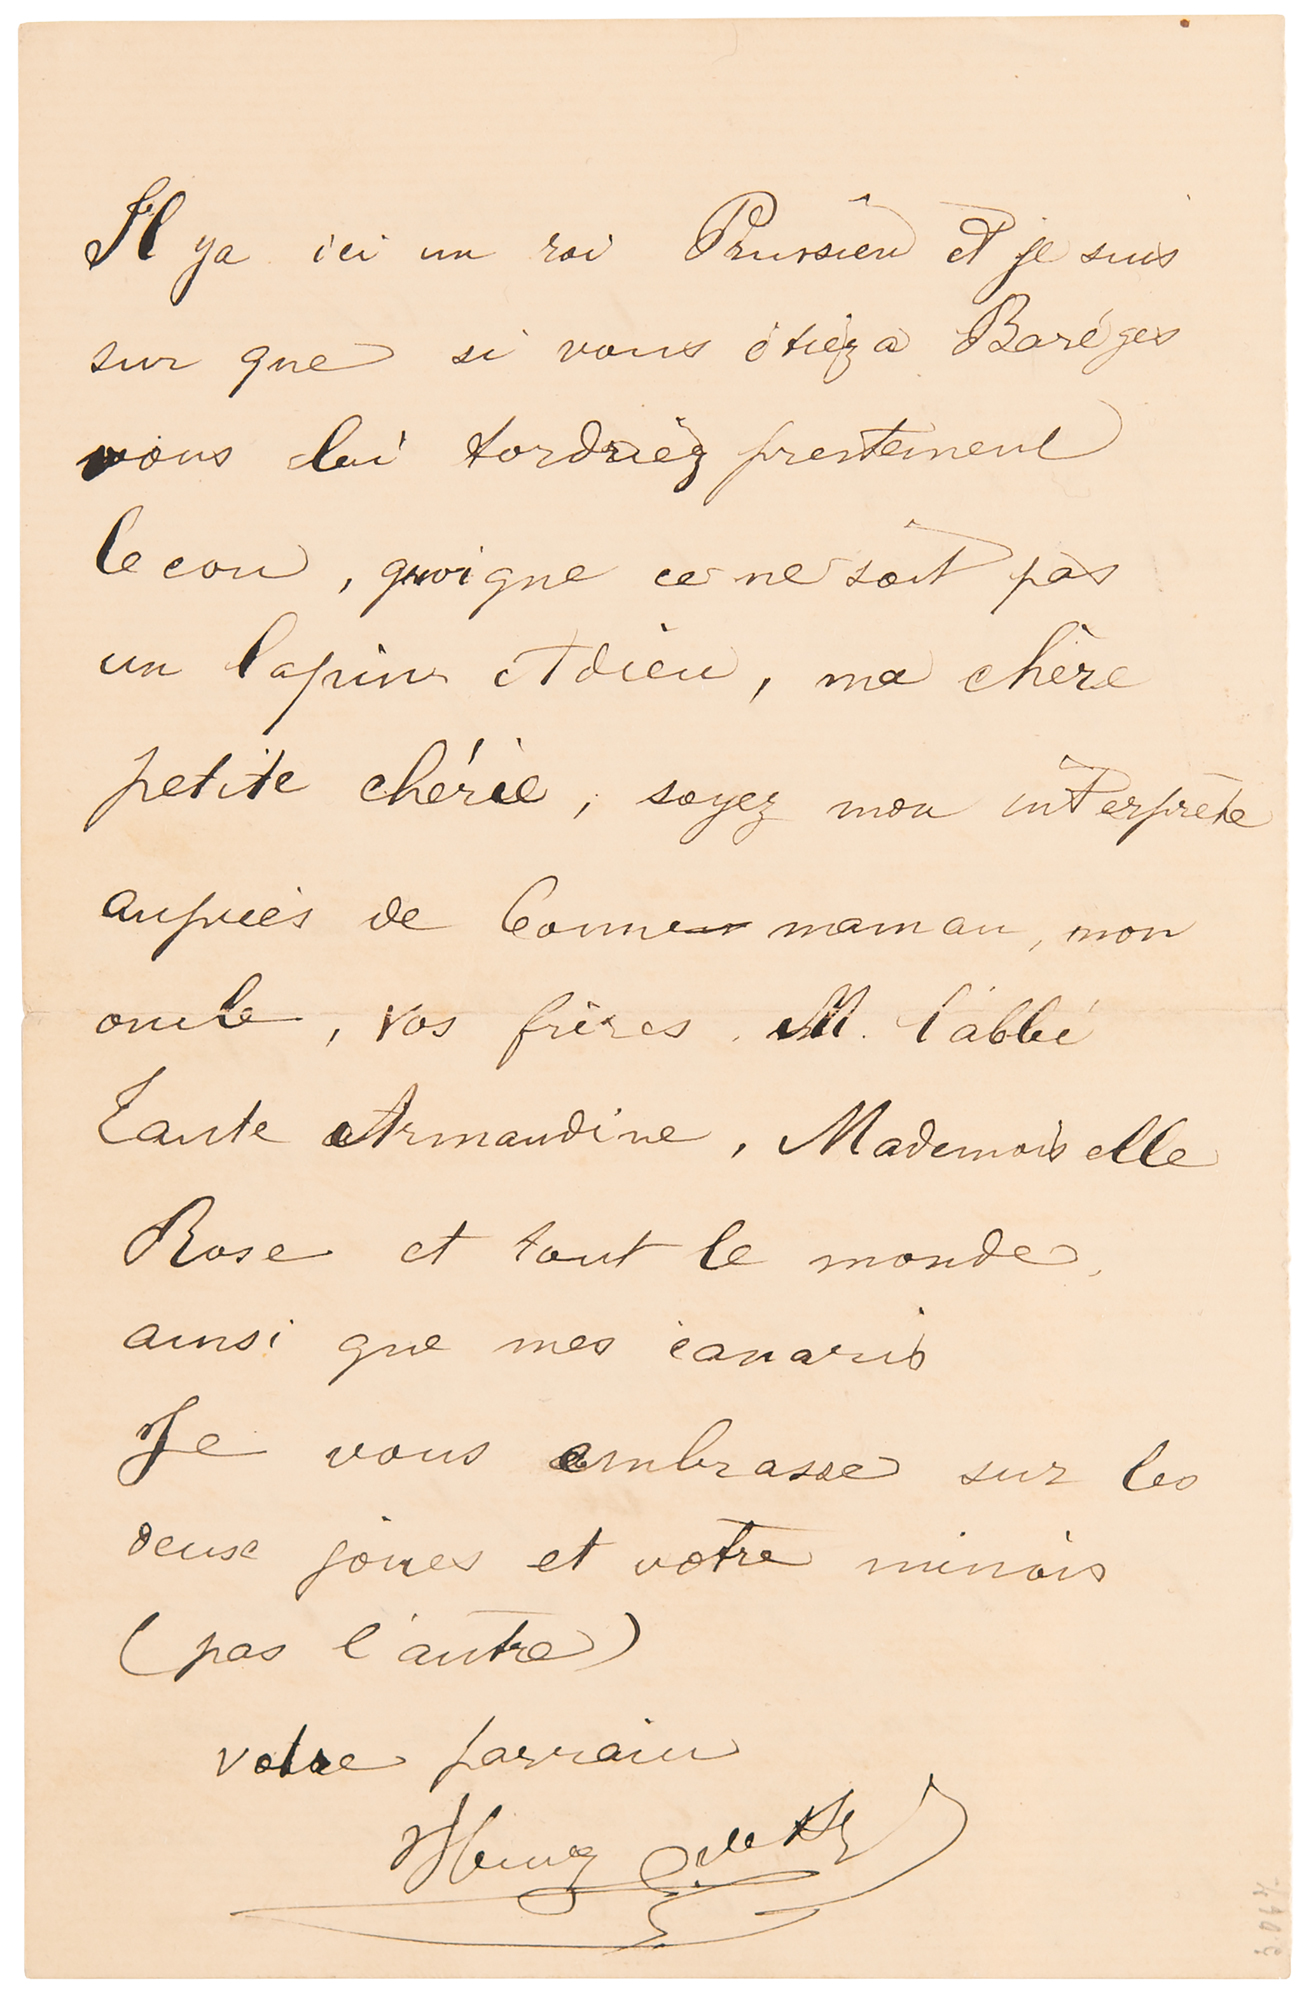 Il ya ici un roi Prussien et je suis
sur que si vous étiez a Baréges
vous lui tordriez prestement
le cou, quoique ce ne soit pas
un lapin Adieu, ma chère
petite chérie, soyez mon interprète
auprès de bonne maman, mon
oncle, vos frères. M. l'abbé
Tante Armandine, Mademoiselle
Rose et tout le monde,
ainsi que mes canaris
Je vous embrasse sur les
deux joues et votre minois
(pas l'autre)
votre parrain
Henry de